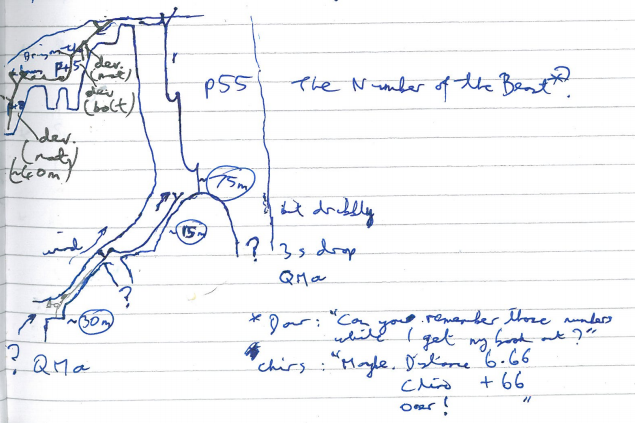 p55 The Number of the Beast*?
dev.
(nat)
dev
(bolt)
P+5
dev.
(nat)
(~40m)
~75m
~15m
bit dribbly
wind
?
? 3s drop
QMa
~30m
? QMa
* Dour: "Can you remember those numbers
while I get my book out?"
* Chirs: "Maybe. Distance 6.66
Clino +66
Ooer! "